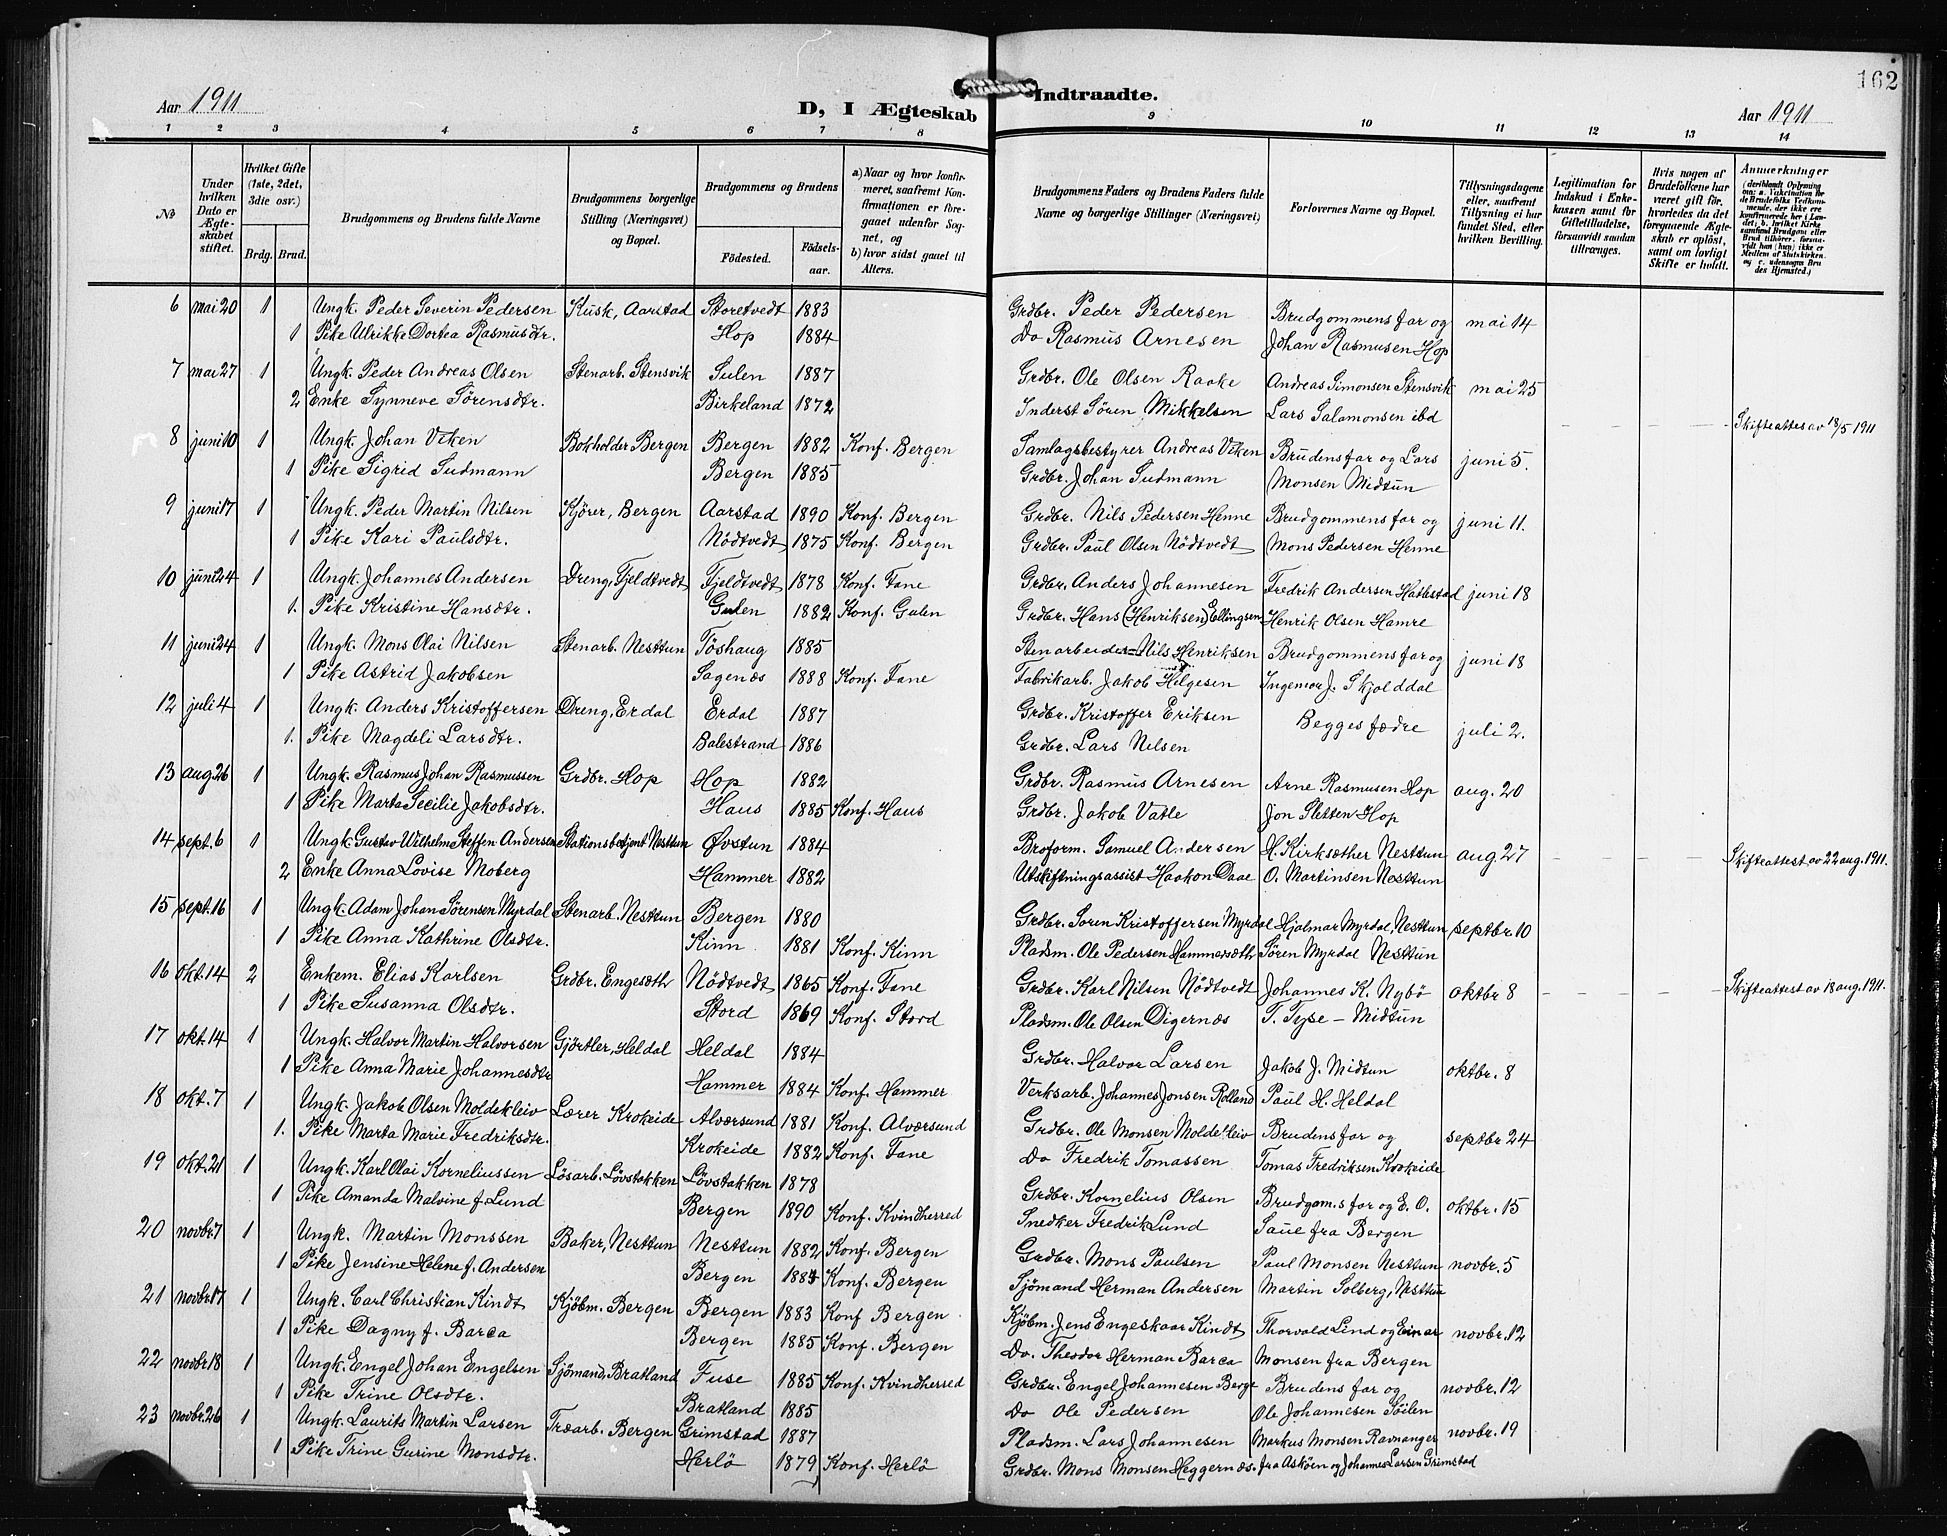 162
Aar 1911
D, I Ægteskab Indtraadte.
Aar 1911
1 2 3 4 5 6 7 8 9 10 11 12 13 14
№
Under hvilken Dato er Ægteskabet stiftet.
Hvilket Gifte (1ste, 2det, 3die osv.)
Brdg. Brud.
Brudgommens og Brudens fulde Navne
Brudgommens borgerlige Stilling (Næringsvei) og Bopæl.
Brudgommens og Brudens
Födested. Födselsaar.
a) Naar og hvor konfirmeret, saafremt Konfirmationen er foregaaet udenfor Sognet, og
b) hvor sidst gaaet til Alters.
Brudgommens Faders og Brudens Faders fulde Navne og borgerlige Stillinger (Næringsvei)
Forlovernes Navne og Bopæl.
Tillysningsdagene eller, saafremt Tillysning ei har fundet Sted, efter hvilken Bevilling.
Legitimation for Indskud i Enkekassen samt for Giftetilladelse, forsaavidt saadan tiltrænges.
Hvis nogen af Brudefolkene har været gift før, hvorledes da det foregaaende Ægteskab er oplöst, samt om lovligt Skifte er holdt.
Anmerkninger
6 mai 20 1 Ungk. Peder Severin Pedersen Kusk, Aarstad Storetvedt 1883 Grdbr. Peder Pedersen Brudgommens far og mai 14
1 Pike Ulrikke Dortea Rasmusdtr. Hop 1884 Do Rasmus Arnesen Johan Rasmusen Hop
7 mai 27 1 Ungk. Peder Andreas Olsen Stenarb. Stensvik Sulen 1887 Grdbr. Ole Olsen Raake Andreas Simonsen Stensvik mai 25
2 Enke Synneve Sörensdtr. Birkeland 1872 Inderst Sören Mikkelsen Lars Salamonsen ibd Skifteattes av 18/5 1911
8 juni 10 1 Ungk. Johan Viken Bokholder Bergen Bergen 1882 Konf. Bergen Samlagsbestyrer Andreas Viken Brudens far og Lars juni 5.
1 Pike Sigrid Sudmann Bergen 1885 Grdbr. Johan Sudmann Monsen Midtun
9 juni 17 1 Ungk. Peder Martin Nilsen Kjörer, Bergen Aarstad 1890 Konf. Bergen Grdbr. Nils Pedersen Henne Brudgommens far og juni 11.
1 Pike Kari Paulsdtr. Nödtvedt 1875 Konf. Bergen Grdbr. Paul Olsen Nödtvedt Mons Pedersen Henne
10 juni 24 1 Ungk. Johannes Andersen Dreng, Fjeldtvedt Fjeldtvedt 1878 Konf. Fane Grdbr. Anders Johannesen Fredrik Andersen Hatlestad juni 18
1. Pike Kristine Hansdtr. Gulen 1882 Konf. Gulen Grdbr. Hans (Henriksen) Ellingsen Henrik Olsen Hamre
11 juni 24 1 Ungk. Mons Olai Nilsen Stenarb. Nesttun Töshaug 1885 Stenarbeider Nils Henriksen Brudgommens far og juni 18
1 Pike Astrid Jakobsen Sagenæs 1888 Konf. Fane Fabrikarb. Jakob Helgesen Ingemor J. Skjolddal
12 juli 4 1 Ungk. Anders Kristoffersen Dreng, Erdal Erdal 1887 Grdbr. Kristoffer Eriksen Begges fædre juli 2.
1. Pike Magdeli Larsdtr. Balestrand 1886 Grdbr. Lars Nilsen
13 aug. 26 1 Ungk. Rasmus Johan Rasmussen Grdbr. Hop Hop 1882 Grdbr. Rasmus Arnesen Arne Rasmusen Hop aug. 20
1 Pike Marta Secilie Jakobsdtr. Haus 1885 Konf. Haus Grdbr. Jakob Vatle Jon Sletten Hop
14 sept. 6 1 Ungk. Gustav Wilhelm Steffen Andersen Stationsbetjent Nesttun Øvstun 1884 Broform. Samuel Andersen H. Kirksæther Nesttun aug 27
2 Enke Anna Lovise Moberg Hammer 1882 Utskiftningsassist Haakon Daae O. Martinsen Nesttun Skifteattest av 22 aug. 1911.
15 sept. 16 1 Ungk. Adam Johan Sörensen Myrdal Stenarb. Nesttun Bergen 1880 Grdbr. Soren Kristoffersen Myrdal Hjalmar Myrdal, Nesttun septbr 10
1 Pike Anna Kathrine Olsdtr. Kinn 1881 Konf. Kinn Pladsm. Ole Pedersen Hammersæth Sören Myrdal Nesttun
16 okt. 14 2 Enkem. Elias Karlsen Grdbr. Engesæth Nödtvedt 1865 Konf. Fane Grdbr. Karl Nilsen Nödtvedt Johannes K. Nybö oktbr 8 Skifteattest av 18 aug. 1911.
1 Pike Susanna Olsdtr. Stord 1869 Konf. Stord Pladsm. Ole Olsen Digernæs T. Tyse - Midtun
17 okt. 14 1 Ungk. Halvor Martin Halvorsen Gjörtler, Heldal Heldal 1884 Grdbr. Halvor Larsen Jakob J. Midtun oktbr. 8
1 Pike Anna Marie Johannesdtr Hammer 1884 Konf. Hammer Verksarb. Johannes Jonsen Rolland Paul H. Heldal
18 okt. 7 1 Ungk. Jakob Olsen Moldekleiv Lærer Krokeide Alværsund 1881 Konf. Alværsund Grdbr. Ole Monsen Moldekleiv Brudens far og septbr 24
1. Pike Marta Marie Fredriksdtr. Krokeide 1882 Konf. Fane Do Fredrik Tomassen Tomas Fredriksen Krokeide
19 okt. 21 1 Ungk. Karl Olai Korneliussen Lösarb. Lövstakken Lövstakken 1878 Grdbr. Kornelius Olsen Brudgom.s far og E. O. oktbr. 15
1 Pike Amanda Malvine f. Lund Bergen 1890 Konf. Kvindherred Snedker Fredrik Lund Saue fra Bergen
20 novbr. 7 1 Ungk. Martin Monssen Baker, Nesttun Nesttun 1882 Konf. Bergen Grdbr. Mons Paulsen Paul Monsen Nesttun novbr. 5
1 Pike Jensine Helene f. Andersen Bergen 1884 Konf. Bergen Sjömand Herman Andersen Martin Solberg, Nesttun
21 novbr. 17 1 Ungk. Carl Christian Kindt Kjöbm. Bergen Bergen 1883 Konf Bergen Kjöbm. Jens Engeskaar Kindt Thorvald Lind og Einar novbr. 12
1 Pike Dagny f. Barca Bergen 1885 Konf. Bergen Do. Theodor Herman Barca Monsen fra Bergen
22 novbr. 18 1 Ungk. Engel Johan Engelsen Sjömand, Bratland Fuse 1885 Konf. Kvindherred Grdbr. Engel Johannesen Berge Brudens far og novbr. 12
1 Pike Trine Olsdtr. Bratland 1885 Do Ole Pedersen Ole Johannesen Söilen
23 novbr. 26 1 Ungk. Laurits Martin Larsen Træarb. Bergen Grimstad 1887 Pladsm. Lars Johannesen Markus Monsen Ravnanger novbr. 19
1 Pike Trine Gurine Monsdtr. Herlö 1879 Konf. Herlö Grdbr. Mons Monsen Heggernæs. fra Asköen og Johannes Larsen Grimstad